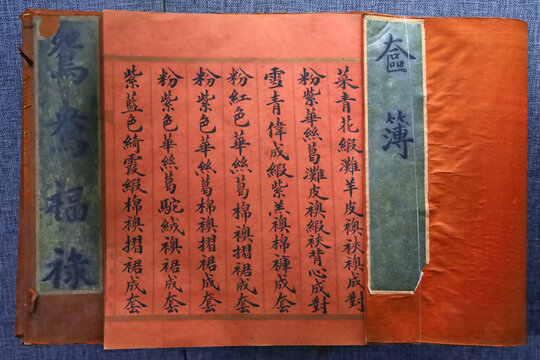 奩簿
菜青花緞灘羊皮襖袂襖成對
粉紫華絲葛灘皮襖緞袂背心成對
雪青偉成緞紫羔襖棉褲成套
粉紅色華絲葛棉襖摺裙成套
粉紫色華絲葛棉襖摺裙成套
粉紫色華絲葛駝絨襖裙成套
紫藍色綺霞緞棉襖摺裙成套
鴛鴦福祿